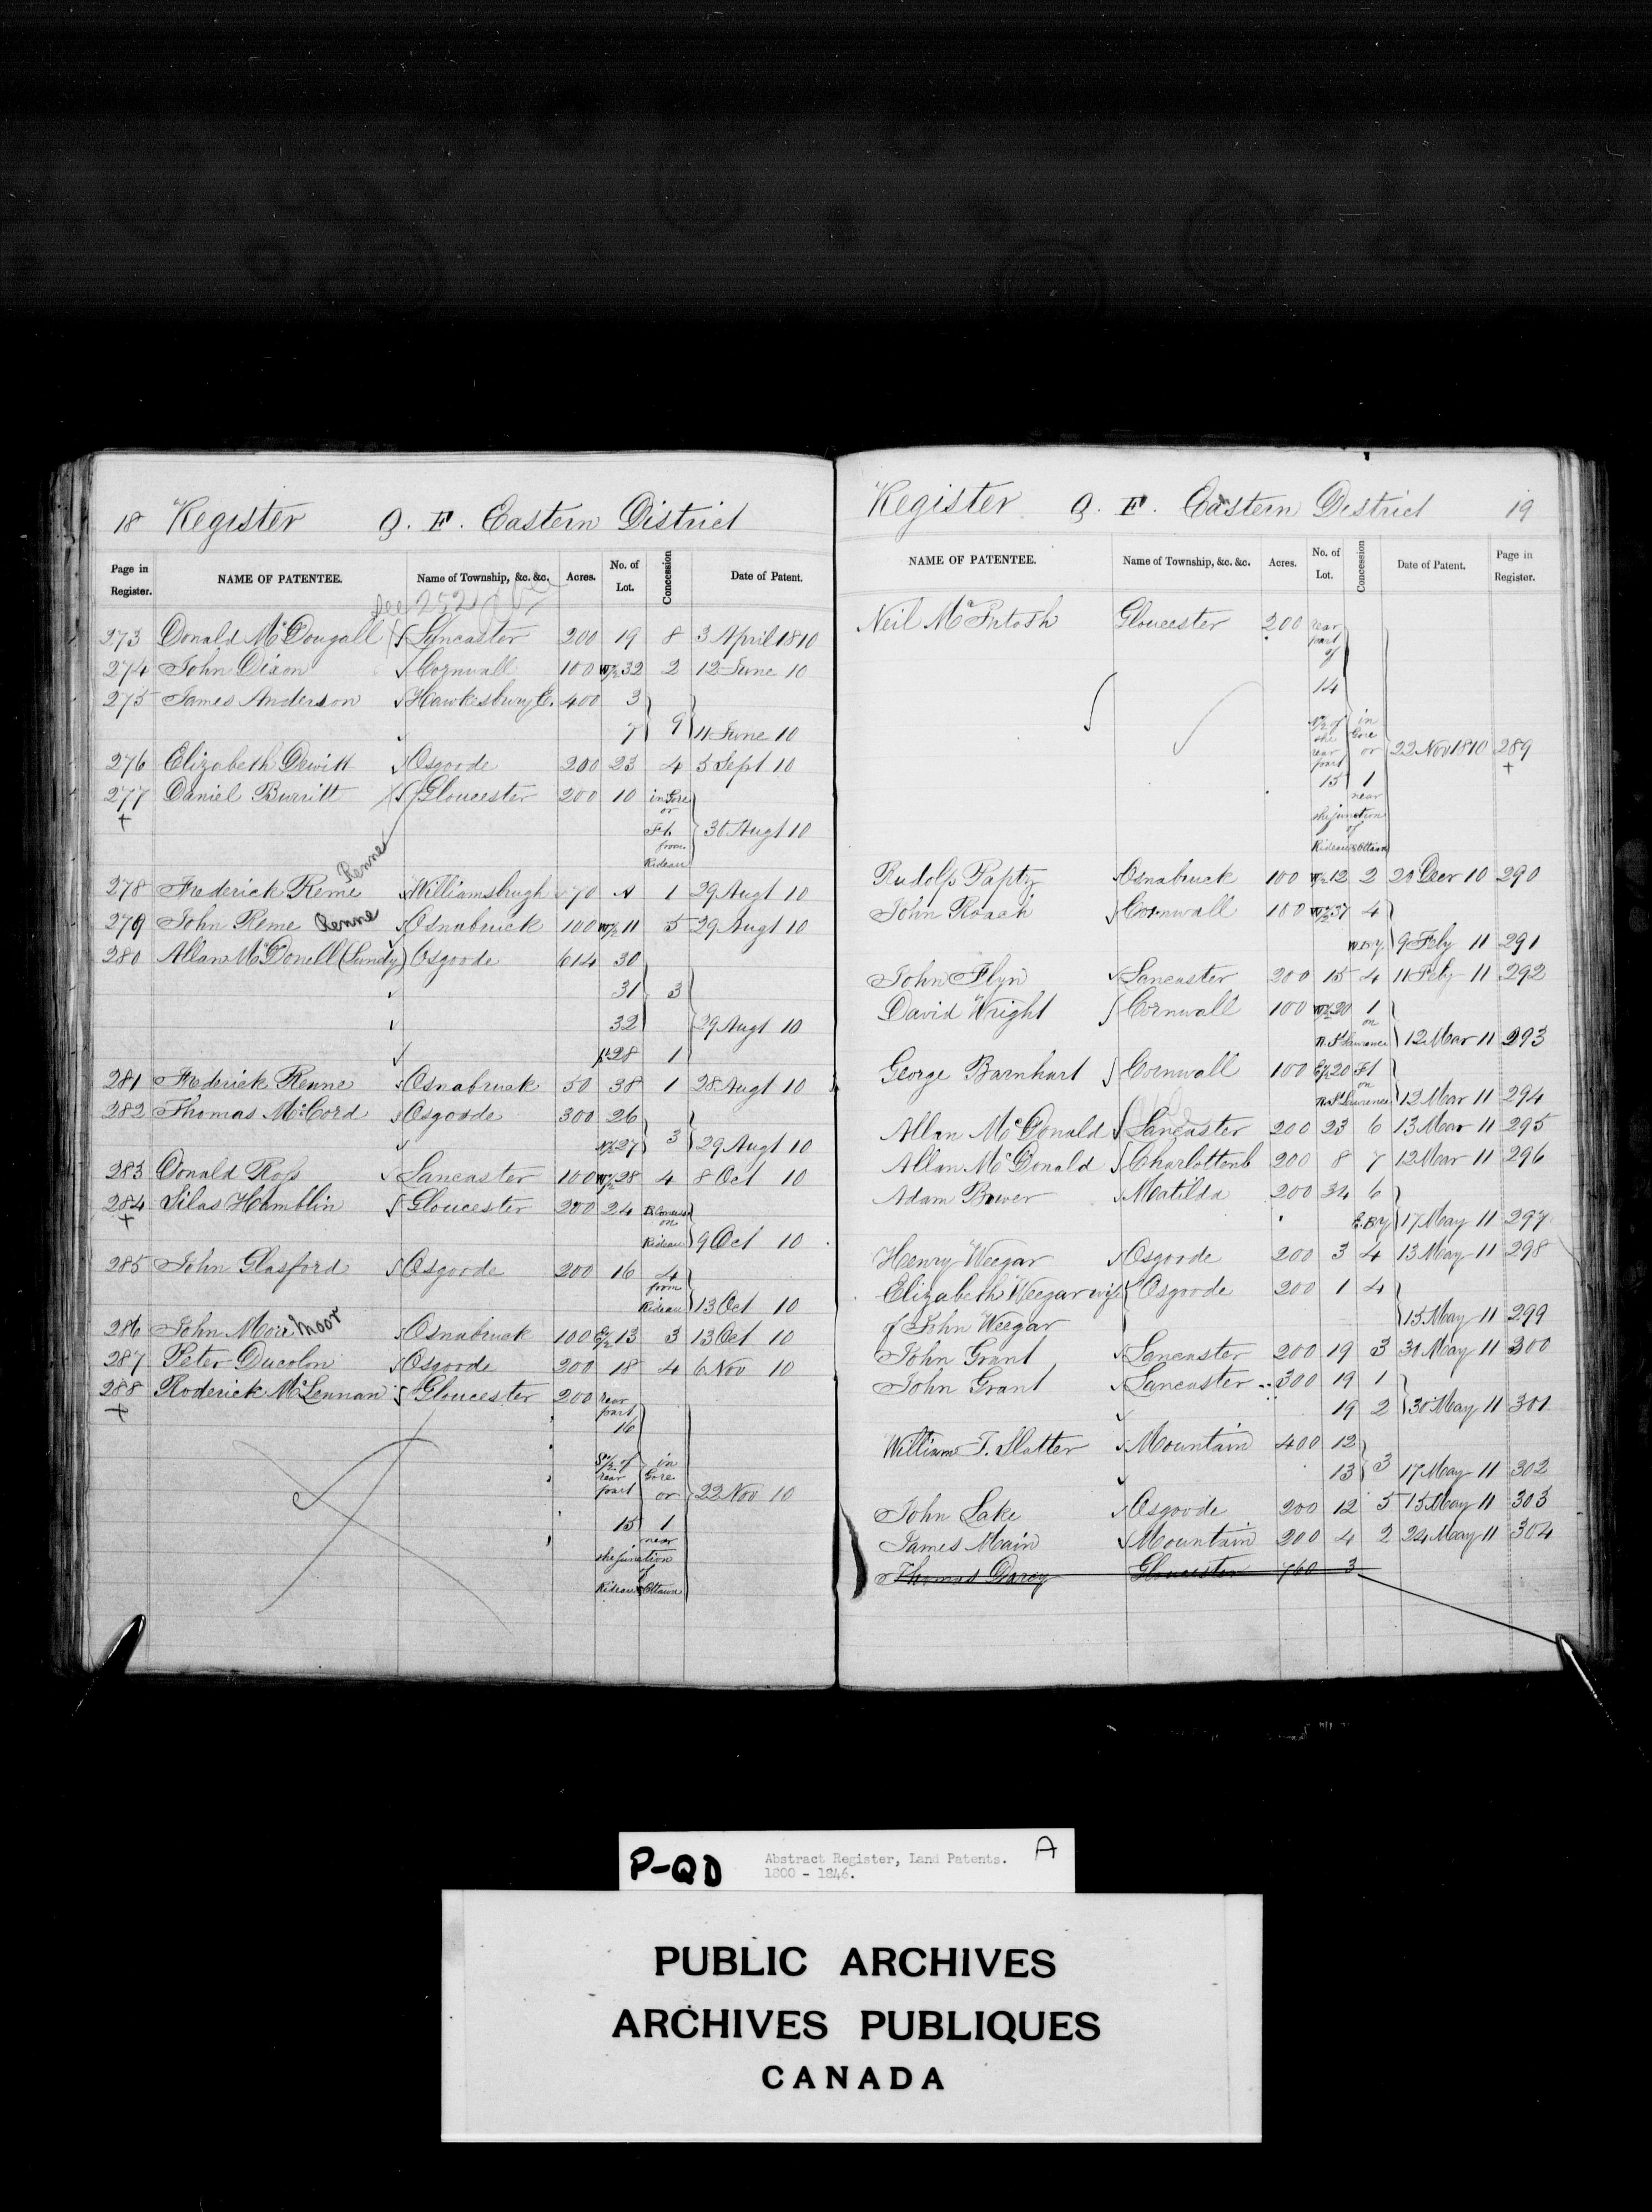 18 Register O. F. Eastern District
Page in Register. NAME OF PATENTEE. Name of Township, &c. &c. Acres. No. of Lot. Concession Date of Patent.
See 252
273 Donald McDougall Lancaster 200 19 8 3 April 1810
274 John Dixon Cornwall 100 W½ 32 2 12 June 10
275 James Anderson Hawkesbury E. 400 3
7 9 11 June 10
276 Elizabeth Dewitt Osgoode 200 23 4 5 Sept 10
277 Daniel Burritt Gloucester 200 10 in Gore
+ or
Ft. 30 Augt 10
from
Rideau
Renne
278 Frederick Reme Williamsburgh 70 A 1 29 Augt 10
279 John Reme Renne Osnabruck 100 W½ 11 5 29 Augt 10
280 Allan McDonell (Lundy) Osgoode 614 30
31 3
32 29 Augt 10
pt 28 1
281 Frederick Renne Osnabruck 50 38 1 28 Augt 10
282 Thomas McCord Osgoode 300 26
27 3 29 Augt 10
283 Donald Ross Lancaster 100 W½ 28 4 8 Oct 10
284 Silas Hamblin Gloucester 200 24
+ on
Rideau 9 Oct 10
285 John Glasford Osgoode 200 16 4
from
Rideau 13 Oct 10
286 John More Moor Osnabruck 100 E½ 13 3 13 Oct 10
287 Peter Ducolon Osgoode 200 18 4 6 Nov 10
288 Roderick McLennan Gloucester 200 rear
+ part
16
S½ of in
rear Gore
part or 22 Nov 10
15 1
near
the junction
of
Rideau & Ottawa
Register O. F. Eastern District 19
NAME OF PATENTEE. Name of Township, &c. &c. Acres. No. of Lot. Concession Date of Patent. Page in Register.
Neil McIntosh Gloucester 200 rear
part
of
14
N½ of in
the Gore
rear or 22 Nov 1810 289
part +
15 1
near
the junction
of
Rideau & Ottawa
Rudolf Papty Osnabruck 100 W½ 12 2 20 Decr 10 290
John Roach Cornwall 100 W½ 37 4
W.B.y 9 Feby 11 291
John Flyn Lancaster 200 15 4 11 Feby 11 292
David Wright Cornwall 100 W½ 20 1
on
R. St Lawrence 12 Mar 11 293
George Barnhart Cornwall 100 E½ 20 Ft
on
R. St Lawrence 12 Mar 11 294
Allan McDonald Lancaster 200 23 6 13 Mar 11 295
Allan McDonald Charlottenb 200 8 7 12 Mar 11 296
Adam Bower Matilda 200 34 6
E.B.y 17 May 11 297
Henry Weegar Osgoode 200 3 4 13 May 11 298
Elizabeth Weegar wife Osgoode 200 1 4
of John Weegar 15 May 11 299
John Grant Lancaster 200 19 3 30 May 11 300
John Grant Lancaster 300 19 1
19 2 30 May 11 301
William T. Slatter Mountain 400 12
13 3 17 May 11 302
John Lake Osgoode 200 12 5 15 May 11 303
James Main Mountain 200 4 2 24 May 11 304
Thomas Darcy Gloucester 760 3
P-QD Abstract Register, Land Patents. A
1800 - 1846.
PUBLIC ARCHIVES
ARCHIVES PUBLIQUES
CANADA